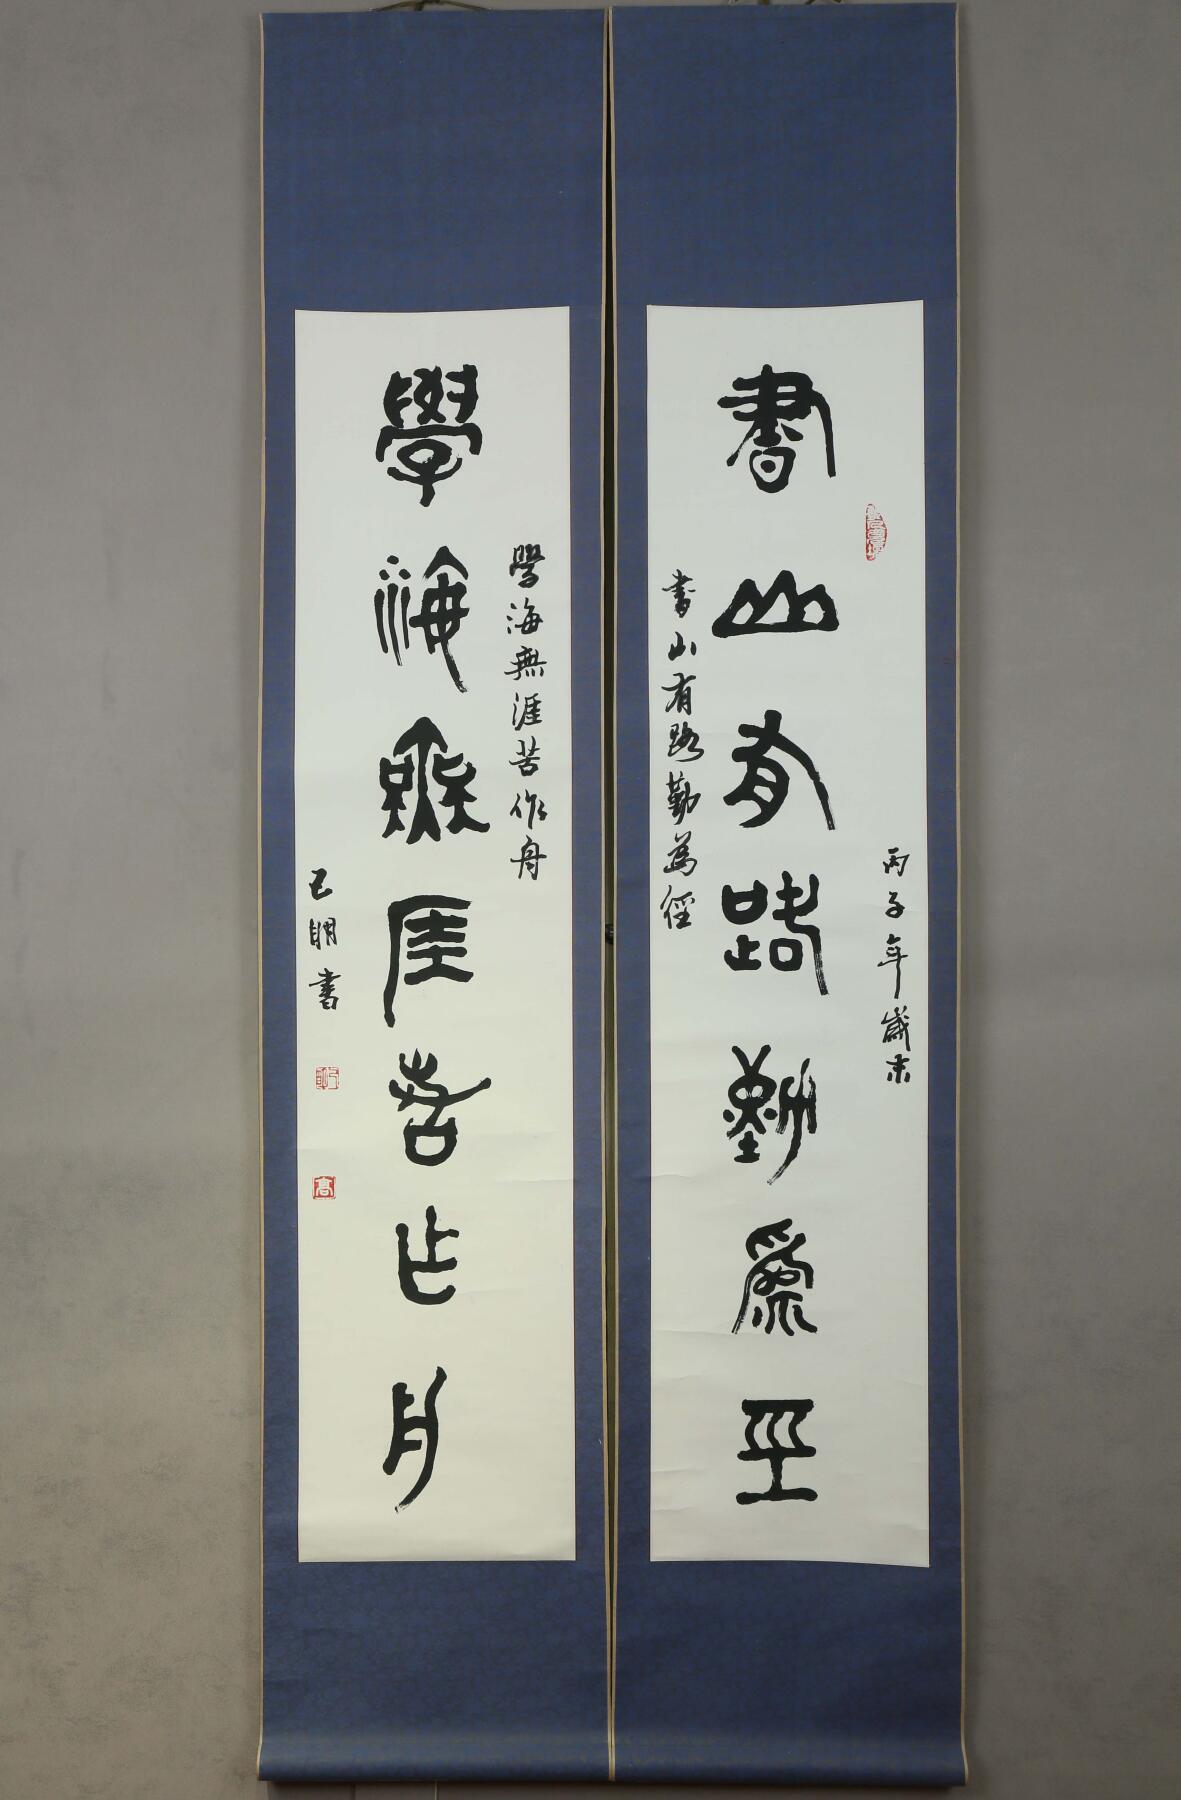 書山有路勤為徑
丙子年歲末
書山有路勤為徑
學海無涯苦作舟
學海無涯苦作舟
已明書
高